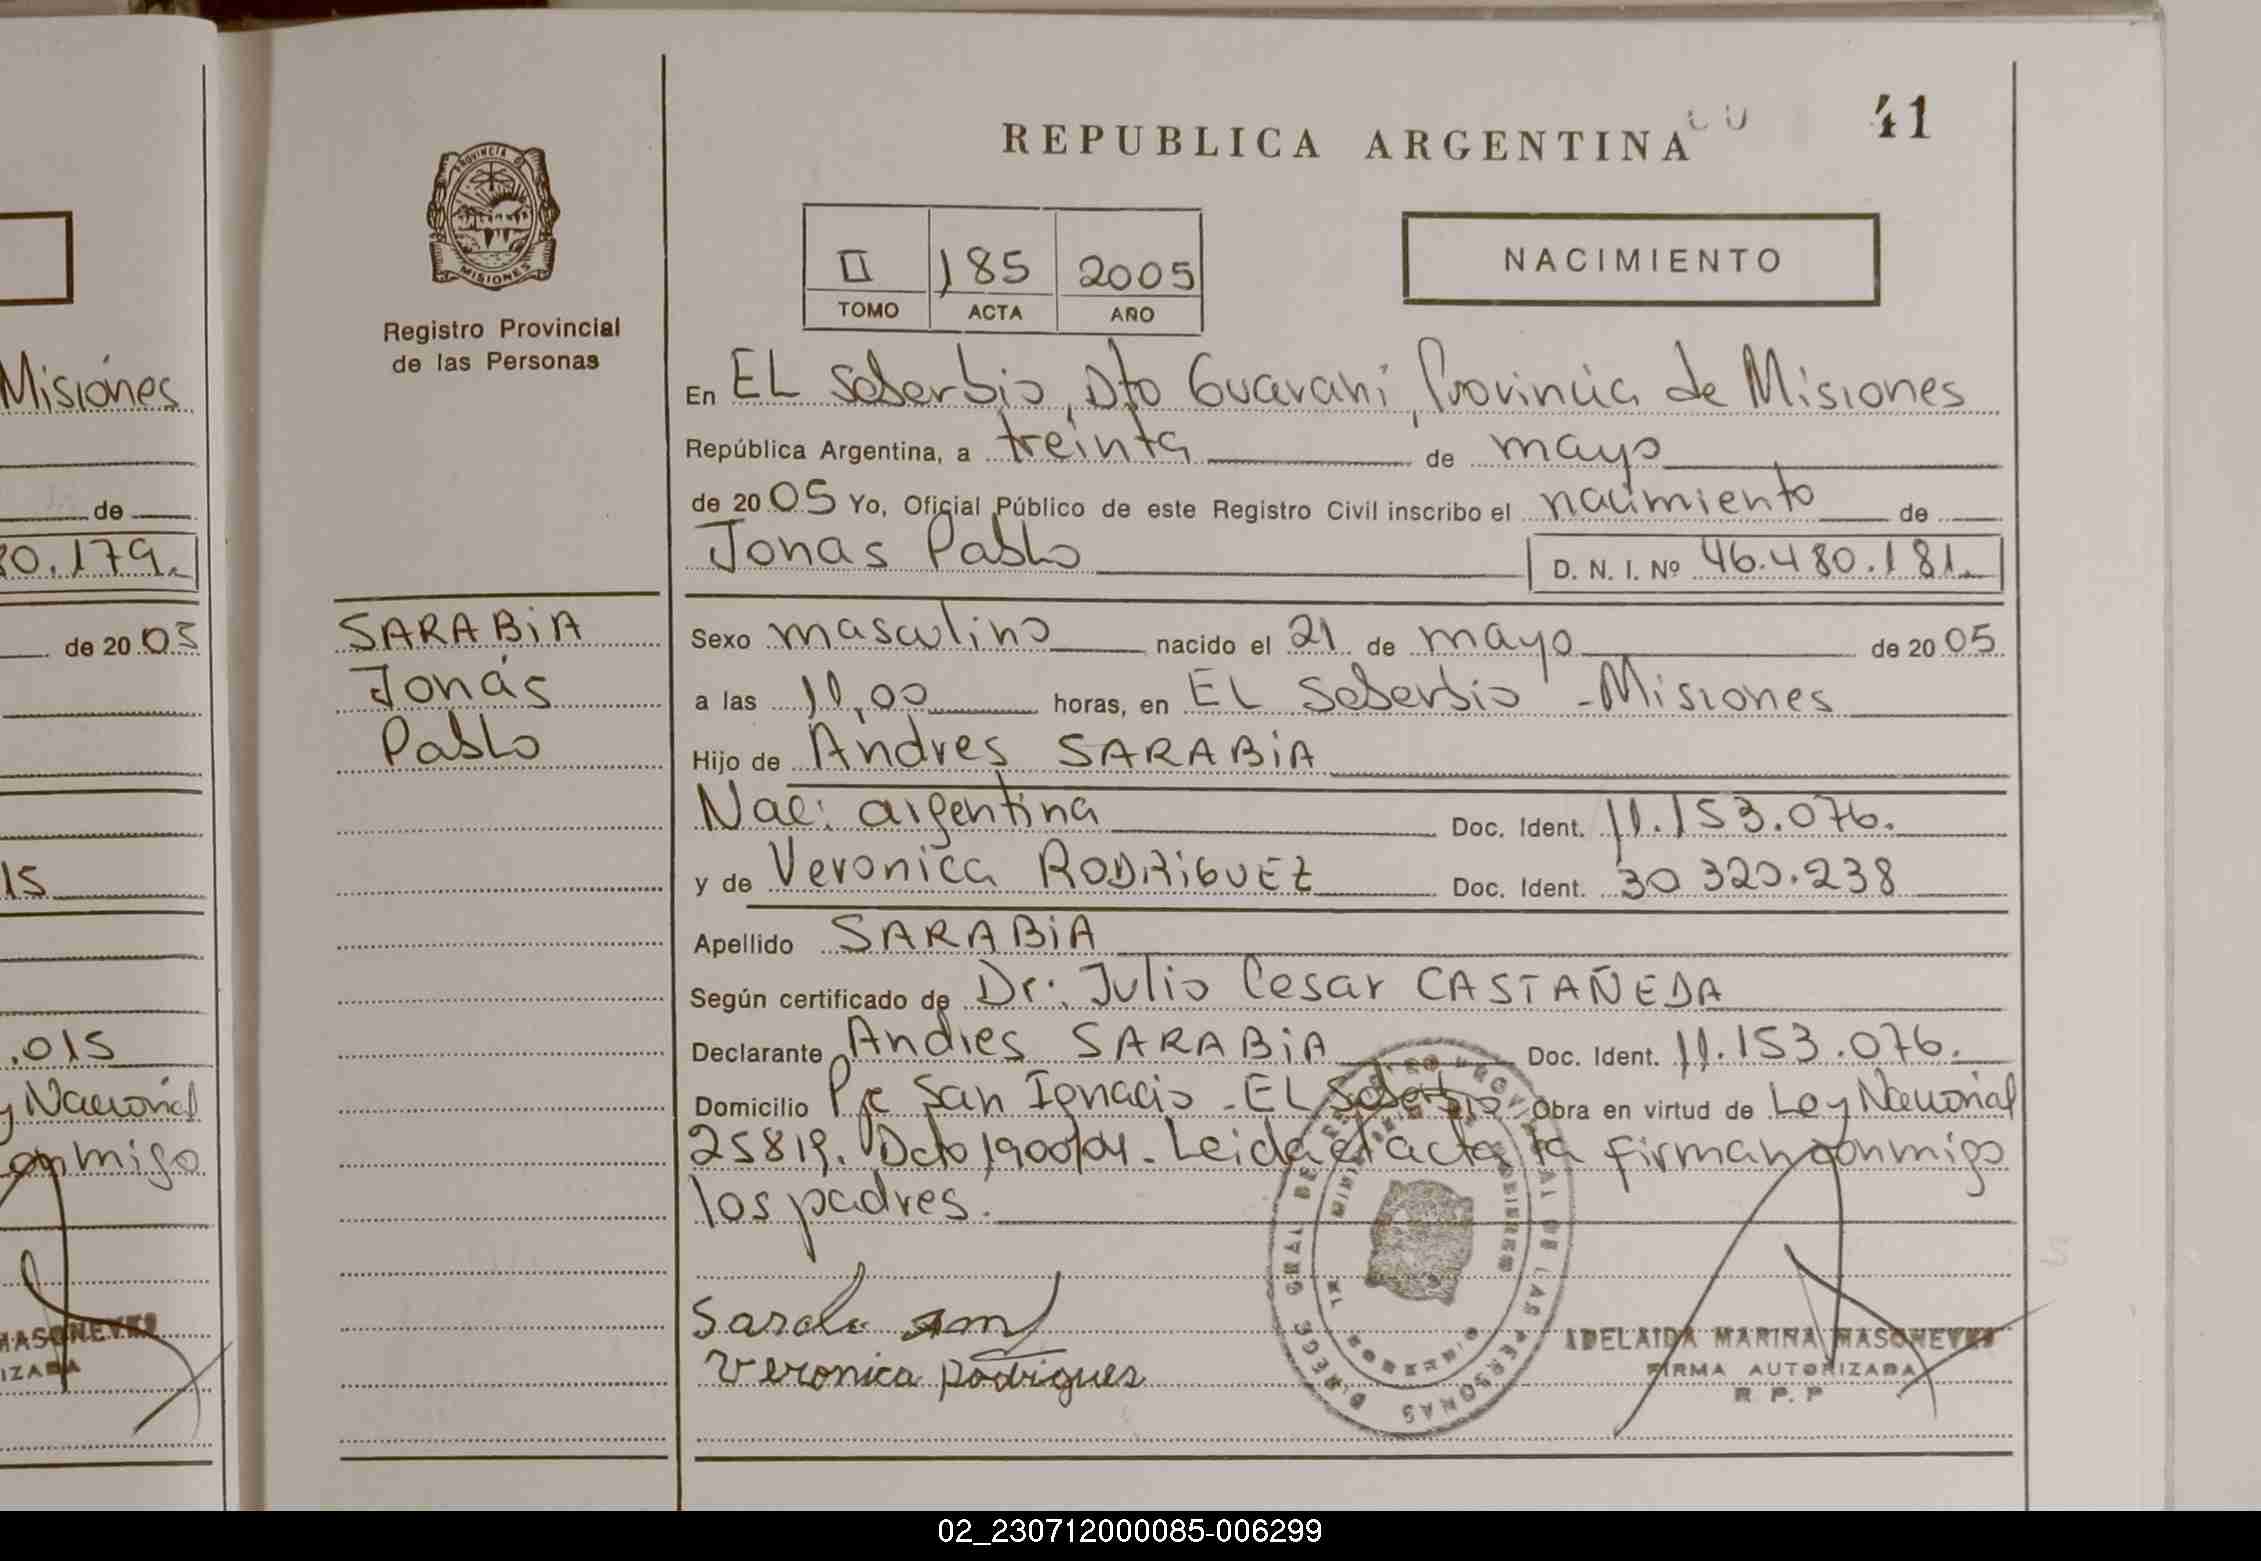 Misiones
de
80.179.
de 20 05
15
.015
y Nacional
conmigo
MASONEVES
IZADA
PROVINCIA DE
MISIONES
Registro Provincial
de las Personas
SARABIA
Jonás
Pablo
REPUBLICA ARGENTINA
41
II 185 2005
TOMO ACTA AÑO
NACIMIENTO
En EL Soberbio, Dto Guarani, Provincia de Misiones
República Argentina, a treinta de mayo
de 20 05 Yo, Oficial Público de este Registro Civil inscribo el nacimiento de
Jonas Pablo D. N. I. Nº 46.480.181.
Sexo masculino nacido el 21 de mayo de 20 05
a las 11,00 horas, en EL Soberbio - Misiones
Hijo de Andres SARABIA
Nac: argentina Doc. Ident. 11.153.076.
y de Veronica RODRIGUEZ Doc. Ident. 30 320.238
Apellido SARABIA
Según certificado de Dr. Julio Cesar CASTAÑEDA
Declarante Andres SARABIA Doc. Ident. 11.153.076.
Domicilio Pje San Ignacio - EL Soberbio Obra en virtud de Ley Nacional
25819. Dcto 1900/04. Leida el acta la firman conmigo
los padres.
Veronica Rodrigues
ADELAIDA MARINA MASONEVES
FIRMA AUTORIZADA
R P. P
02_230712000085-006299